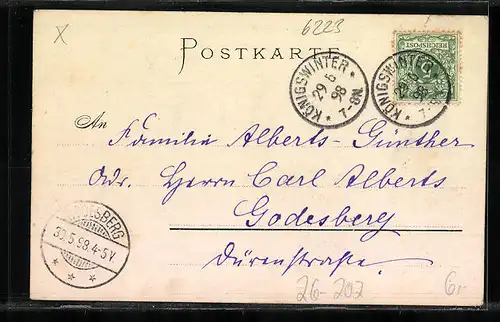 x
6223
POSTKARTE
REICHSPOST
KÖNIGSWINTER
29 5
98
7-8N.
KÖNIGSWINTER
29 5
98
7-8N.
An
Familie Alberts-Günther
Adr. Herrn Carl Alberts
Godesberg
Dürenstraße.
GODESBERG
30.5.98.4-5V.
26-202
6,-